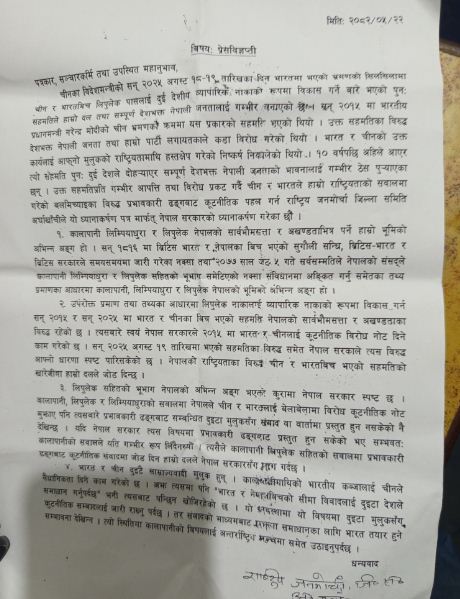 मिति: २०८२/०५/२२
विषय: प्रेसविज्ञप्ती
पत्रकार, सञ्चारकर्मि तथा उपस्थित महानुभाव,
चीनका विदेशमन्त्रीको सन् २०२५ अगस्ट १८-१९ तारिखका दिन भारतमा भएको भ्रमणको सिलसिलामा
चीन र भारतबिच लिपुलेक पासलाई दुई देशीय व्यापारिक नाकाको रूपमा विकास गर्ने बारे भएको पुन:
सहमतिले हाम्रो दल तथा सम्पूर्ण देशभक्त नेपाली जनतालाई गम्भीर बनाएको छ। सन् २०१५ मा भारतीय
प्रधानमन्त्री नरेन्द्र मोदीको चीन भ्रमणको क्रममा यस प्रकारको सहमति भएको थियो । उक्त सहमतिका विरुद्ध
देशभक्त नेपाली जनता तथा हाम्रो पार्टी लगायतकाले कडा विरोध गरेको थियो । भारत र चीनको उक्त
कार्यलाई आफ्नो मुलुकको राष्ट्रियतामाथि हस्तक्षेप गरेको निष्कर्ष निकालेको थियो । १० वर्षपछि अहिले आएर
त्यो सहमति पुन: दुई देशले दोहऱ्याएर सम्पूर्ण देशभक्त नेपाली जनताको भावनालाई गम्भीर ठेस पुऱ्याएका
छन् । उक्त सहमतिप्रति गम्भीर आपत्ति तथा विरोध प्रकट गर्दै चीन र भारतले हाम्रो राष्ट्रियताको सवालमा
गरेको बलमिच्याइका विरुद्ध प्रभावकारी ढङ्गबाट कूटनीतिक पहल गर्न राष्ट्रिय जनमोर्चा जिल्ला समिति
अर्घाखाँचीले यो ध्यानाकर्षण पत्र मार्फत् नेपाल सरकारको ध्यानाकर्षण गरेका छौँ ।
१. कालापानी लिम्पियाधुरा र लिपुलेक नेपालको सार्वभौमसत्ता र अखण्डताभित्र पर्ने हाम्रो भूमिको
अभिन्न अङ्ग हो । सन् १८१६ मा ब्रिटिस भारत र नेपालका बिच भएको सुगौली सन्धि, ब्रिटिस-भारत र
ब्रिटिस सरकारले समयसमयमा जारी गरेका नक्सा तथा २०७७ साल जेठ ५ गते सर्वसम्मतिले नेपालको संसद्‌ले
कालापानी लिम्पियाधुरा र लिपुलेक सहितको भूभाग समेटिएको नक्सा संविधानमा अङ्कित गर्नु समेतका तथ्य
प्रमाणका आधारमा कालापानी, लिम्पियाधुरा र लिपुलेक नेपालको भूमिको अभिन्न अङ्ग हो ।
२. उपरोक्त प्रमाण तथा तथ्यका आधारमा लिपुलेक नाकालाई व्यापारिक नाकाको रूपमा विकास गर्न
सन् २०१५ र सन् २०२५ मा भारत र चीनका बिच भएको सहमति नेपालको सार्वभौमसत्ता र अखण्डताका
विरुद्ध रहेको छ । त्यसबारे स्वयं नेपाल सरकारले २०१५ मा भारत र चीनलाई कूटनीतिक विरोध नोट दिने
काम गरेको छ । सन् २०२५ अगस्ट १९ तारिखमा भएको सहमतिका विरुद्ध समेत नेपाल सरकारले त्यस विरुद्ध
आफ्नो धारणा स्पष्ट पारिसकेको छ । नेपालको राष्ट्रियताका विरुद्ध चीन र भारतबिच भएको सहमतिको
खारेजीमा हाम्रो दलले जोड दिन्छ ।
३. लिपुलेक सहितको भूभाग नेपालको अभिन्न अङ्ग भएको कुरामा नेपाल सरकार स्पष्ट छ ।
कालापानी, लिपुलेक र लिम्पियाधुराको सवालमा नेपालले चीन र भारतलाई बेलाबेलामा विरोध कूटनीतिक नोट
बुझाए पनि त्यसबारे प्रभावकारी ढङ्गबाट सम्बन्धित दुइटा मुलुकसँग संवाद वा वार्तामा प्रस्तुत हुन नसकेको नै
देखिन्छ । यदि नेपाल सरकार त्यस विषयमा प्रभावकारी ढङ्गबाट प्रस्तुत हुन सकेको भए सम्भवत:
कालापानीको सवालले यति गम्भीर रूप लिँदैनथ्यो । त्यसैले कालापानी लिपुलेक सहितको सवालमा प्रभावकारी
ढङ्गबाट कूटनीतिक संवादमा जोड दिन हाम्रो दलले नेपाल सरकारसँग माग गर्दछ ।
४. भारत र चीन दुइटै साम्राज्यवादी मुलुक हुन् । कालापानीमाथिको भारतीय कब्जालाई चीनले
वैधानिकता दिने काम गरेको छ । अझ त्यसमा पनि "भारत र नेपालबिचको सीमा विवादलाई दुइटा देशले
समाधान गर्नुपर्दछ" भनी त्यसबाट पन्छिन खोजिरहेको छ । यो अवस्थामा यो विषयमा दुइटा मुलुकसँग
कूटनीतिक सम्वादलाई जारी राख्नु पर्दछ । तर संवादको माध्यमबाट समस्या समाधानका लागि भारत तयार हुने
सम्भावना देखिन्न । त्यो स्थितिमा कालापानीको विषयलाई अन्तर्राष्ट्रिय मञ्चमा समेत उठाइनुपर्दछ ।
धन्यवाद
राष्ट्रिय जनमोर्चा,